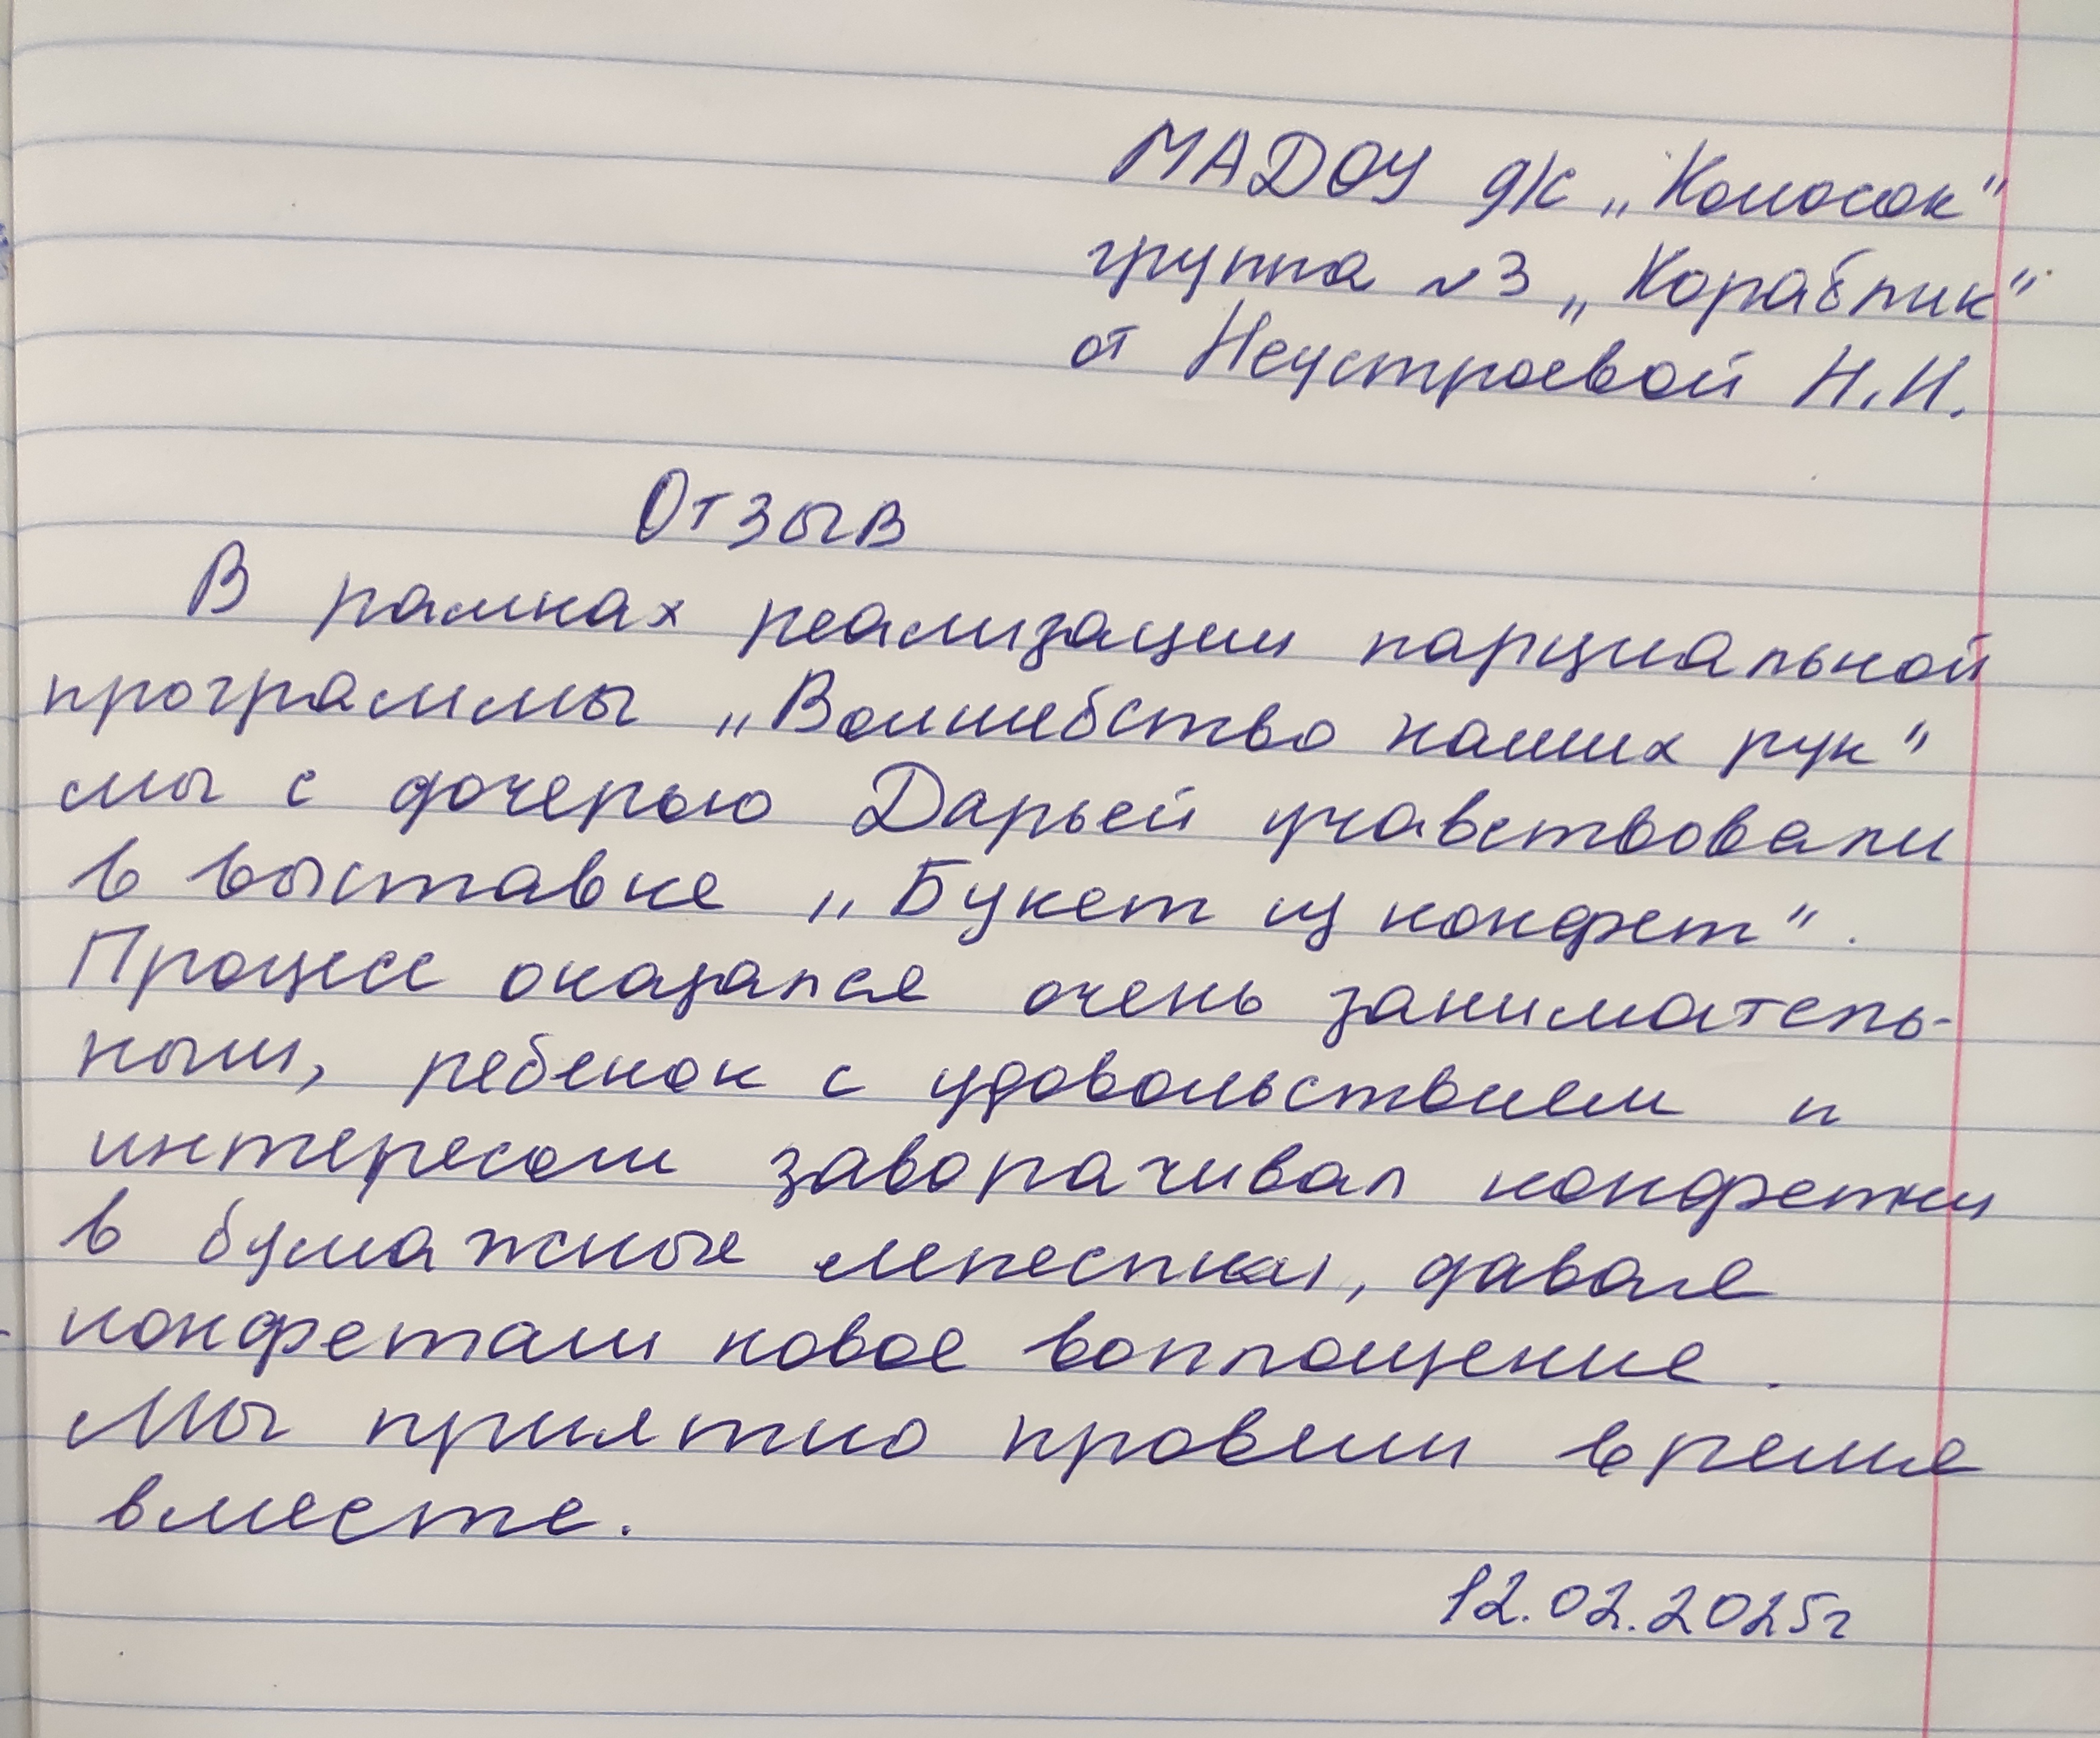 МАДОУ д/с „Колосок"
группа №3 „Кораблик"
от Неустроевой Н.И.
Отзыв
В рамках реализации парциальной
программы „Волшебство наших рук"
мы с дочерью Дарьей учавствовали
в выставке „Букет из конфет".
Процесс оказался очень заниматель-
ным, ребенок с удовольствием и
интересом заворачивал конфетки
в бумажные лепестки, давая
конфетам новое воплощение.
Мы приятно провели время
вместе.
12.02.2025г